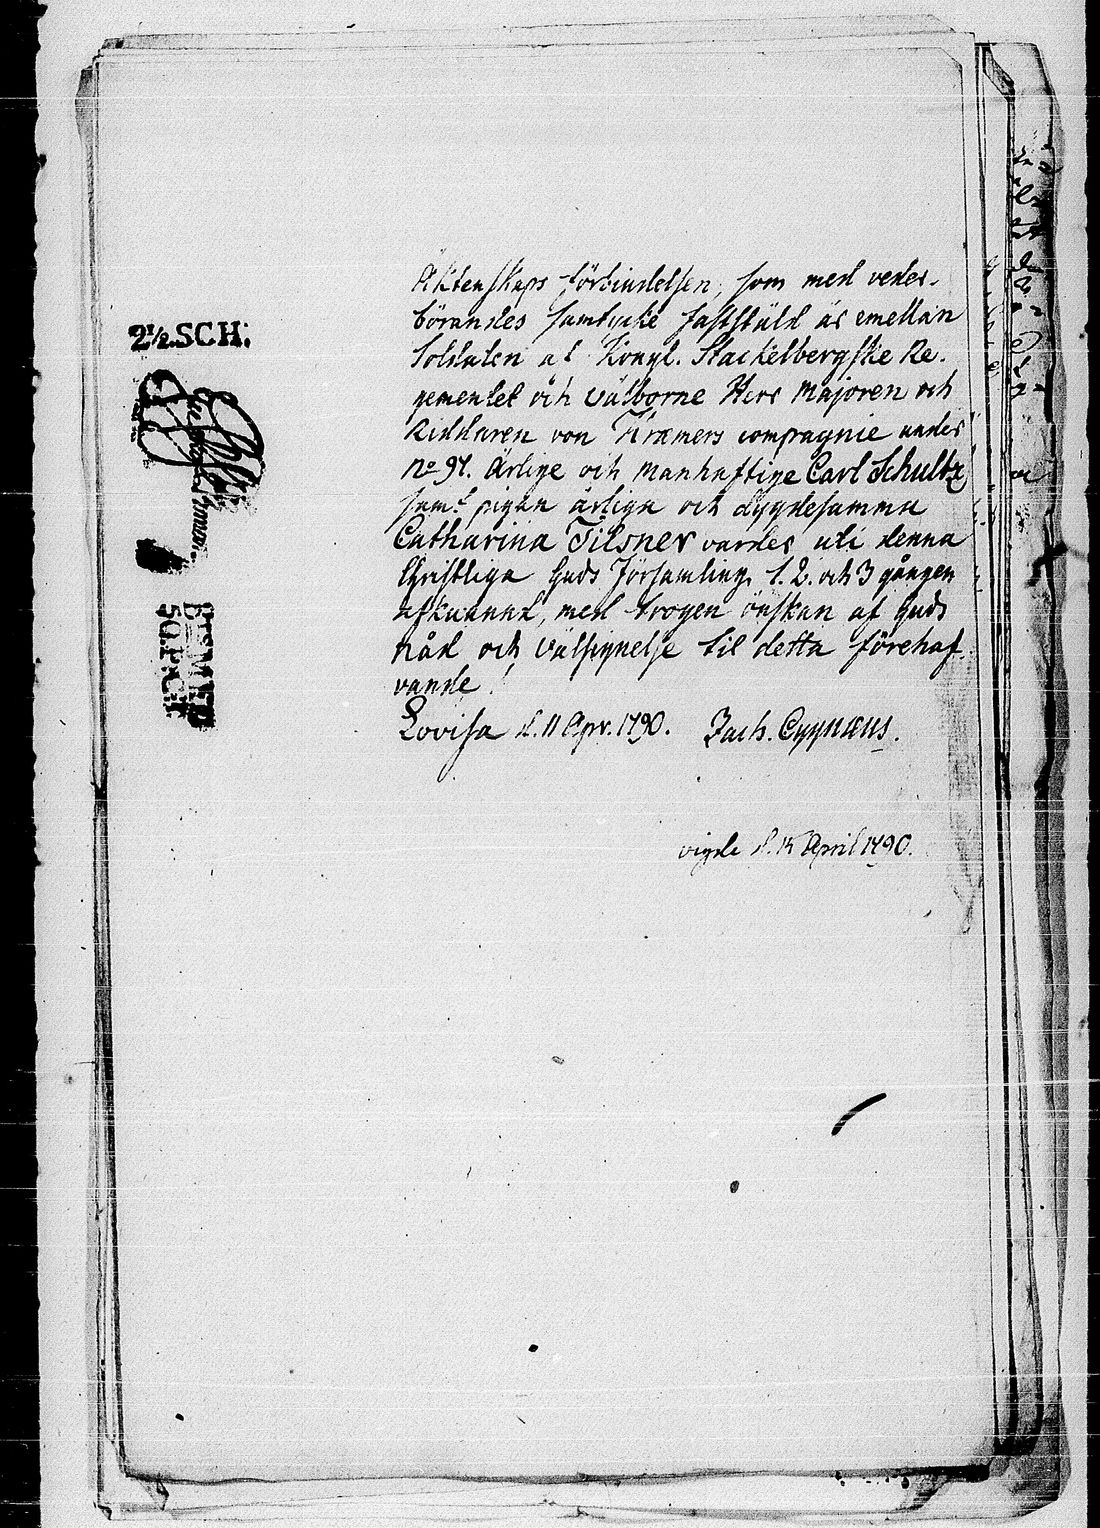 2½.SCH:
Äktenskaps förbindelsen, som med veder-
börandes samtycke faststäld är emellan
Soldaten af Kongl. Stackelbergske Re-
gementet och Välborne Herr Majoren och
Riddaren von Kræmers compagnie under
No 97. Ärlige och manhaftige Carl Schultz
samt pigan ärliga och dygdesamma
Catharina Tilsner varder uti denna
Christliga Guds Församling 1. 2. och 3 gången
afkunnad, med trogen önskan af Guds
nåd och välsignelse til detta förehaf-
vande!
Lovisa d. 11 Apr. 1790. Zach. Cygnæus.
vigde d. April 1790.